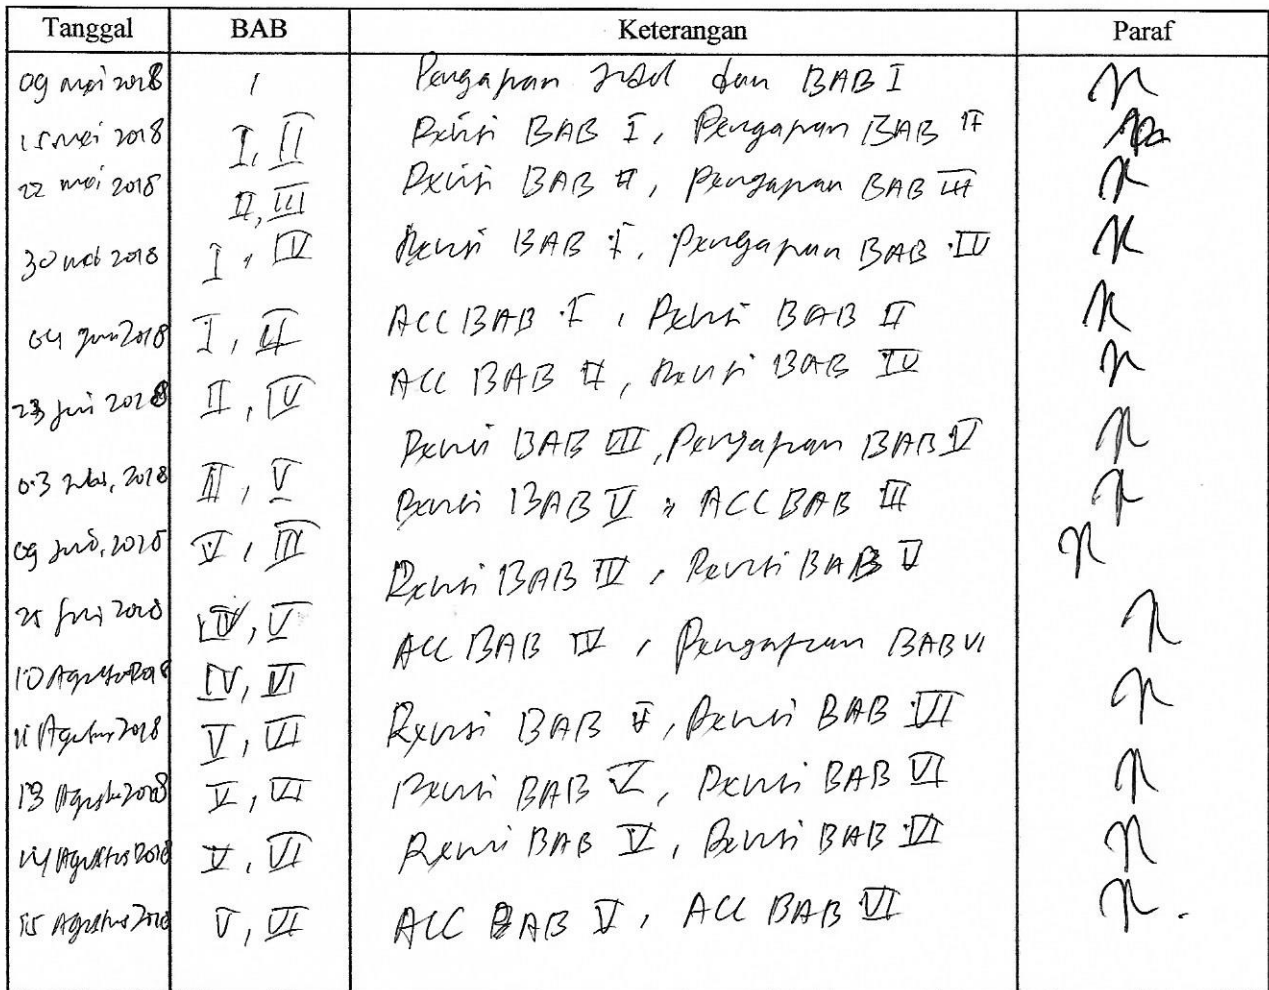 Tanggal BAB Keterangan Paraf
09 mei 2018 1 Pengajuan Judul dan BAB I
15 mei 2018 I, II Revisi BAB I, Pengajuan BAB II
22 mei 2018 II, III Revisi BAB II, Pengajuan BAB III
30 mei 2018 I, IV Revisi BAB I, Pengajuan BAB IV
04 Juni 2018 I, II ACC BAB I, Revisi BAB II
23 Juni 2018 II, IV ACC BAB II, Revisi BAB IV
03 2018 III, V Revisi BAB III, Pengajuan BAB V
09 2018 V, III Revisi BAB V, ACC BAB III
25 2018 IV, V Revisi BAB IV, Revisi BAB V
10 Agustus 2018 IV, VI ACC BAB IV, Pengajuan BAB VI
11 Agustus 2018 V, VI Revisi BAB V, Revisi BAB VI
13 Agustus 2018 V, VI Revisi BAB V, Revisi BAB VI
14 Agustus 2018 V, VI Revisi BAB V, Revisi BAB VI
15 Agustus 2018 V, VI ACC BAB V, ACC BAB VI